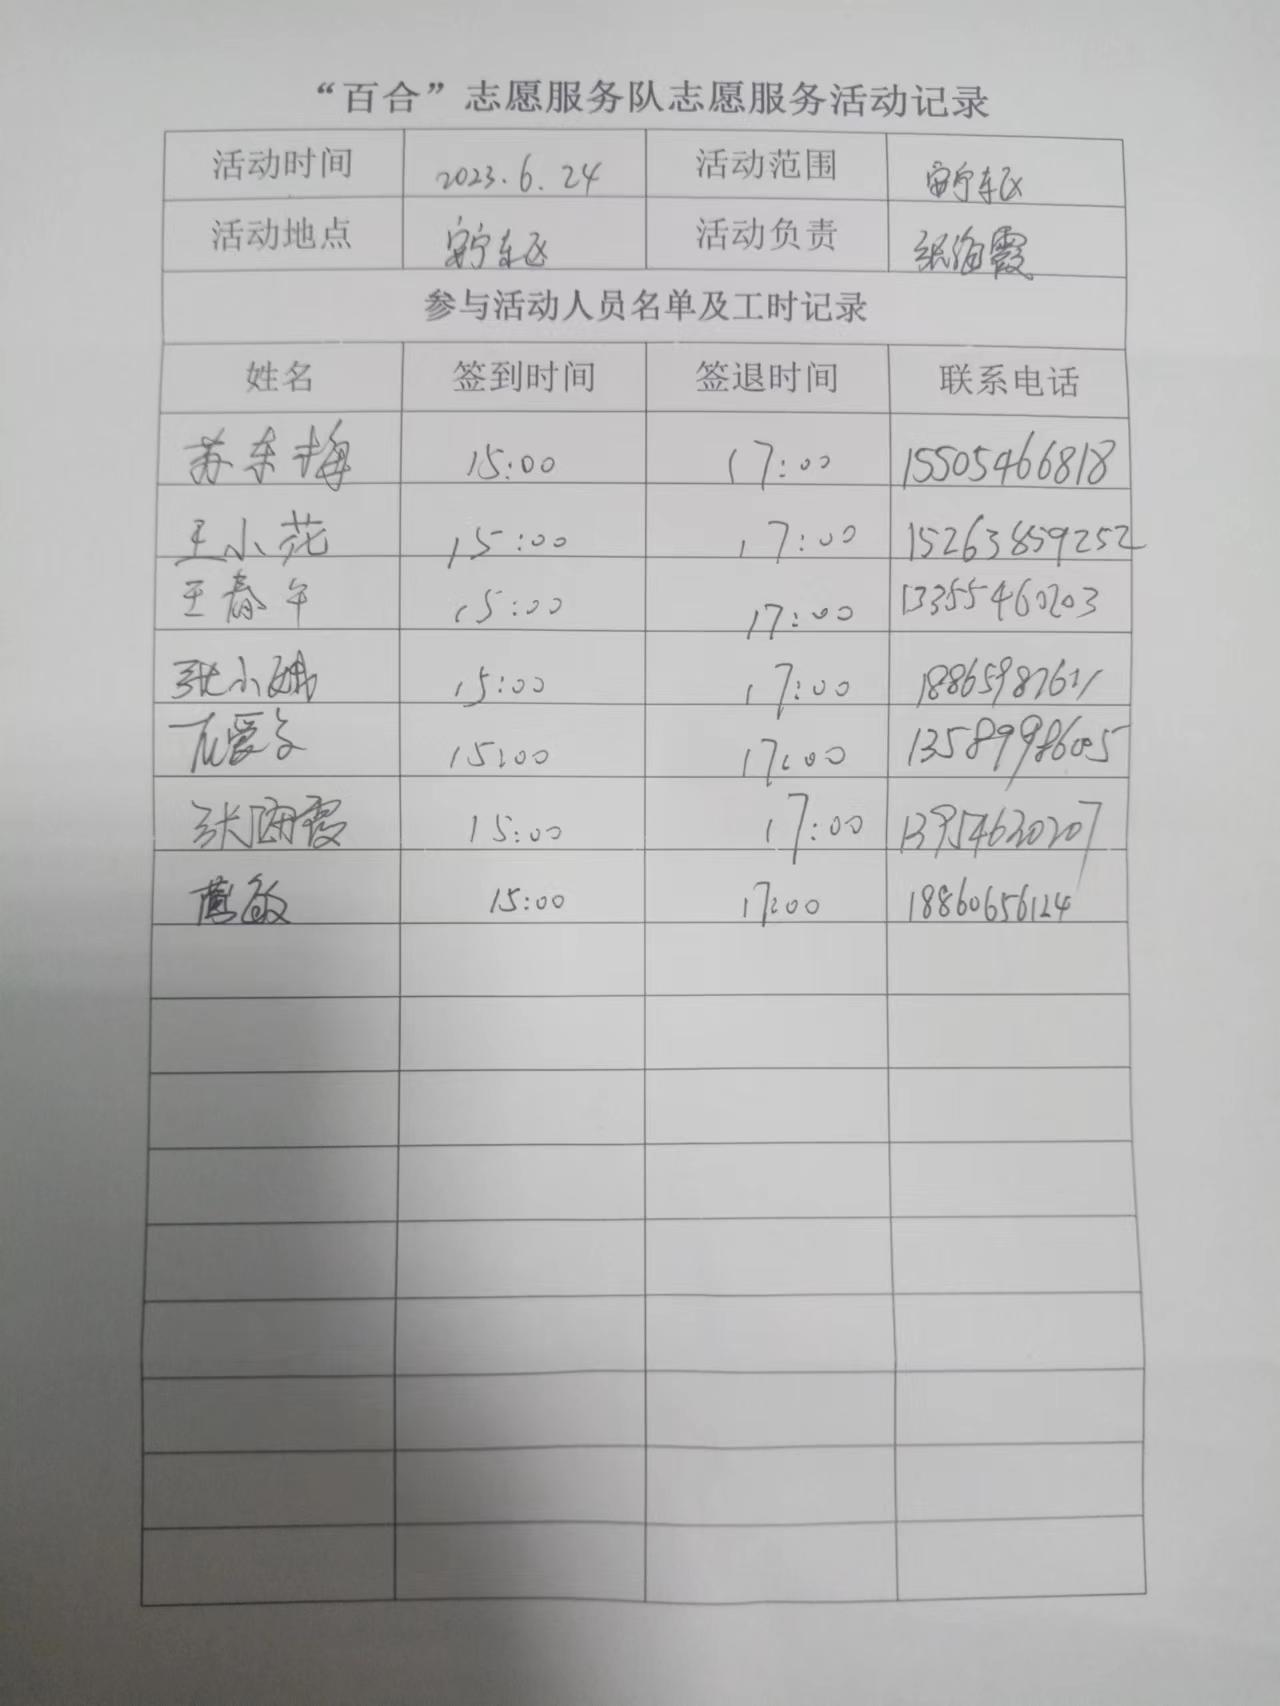 “百合”志愿服务队志愿服务活动记录
活动时间 2023.6.24 活动范围 安宁东区
活动地点 安宁东区 活动负责 张海霞
参与活动人员名单及工时记录
姓名 签到时间 签退时间 联系电话
苏东梅 15:00 17:00 15505466818
王小花 15:00 17:00 15263859252
王春午 15:00 17:00 13355460203
张小娥 15:00 17:00
15:00 17:00 13589986085
张海霞 15:00 17:00 13954630207
15:00 17:00 18860656124